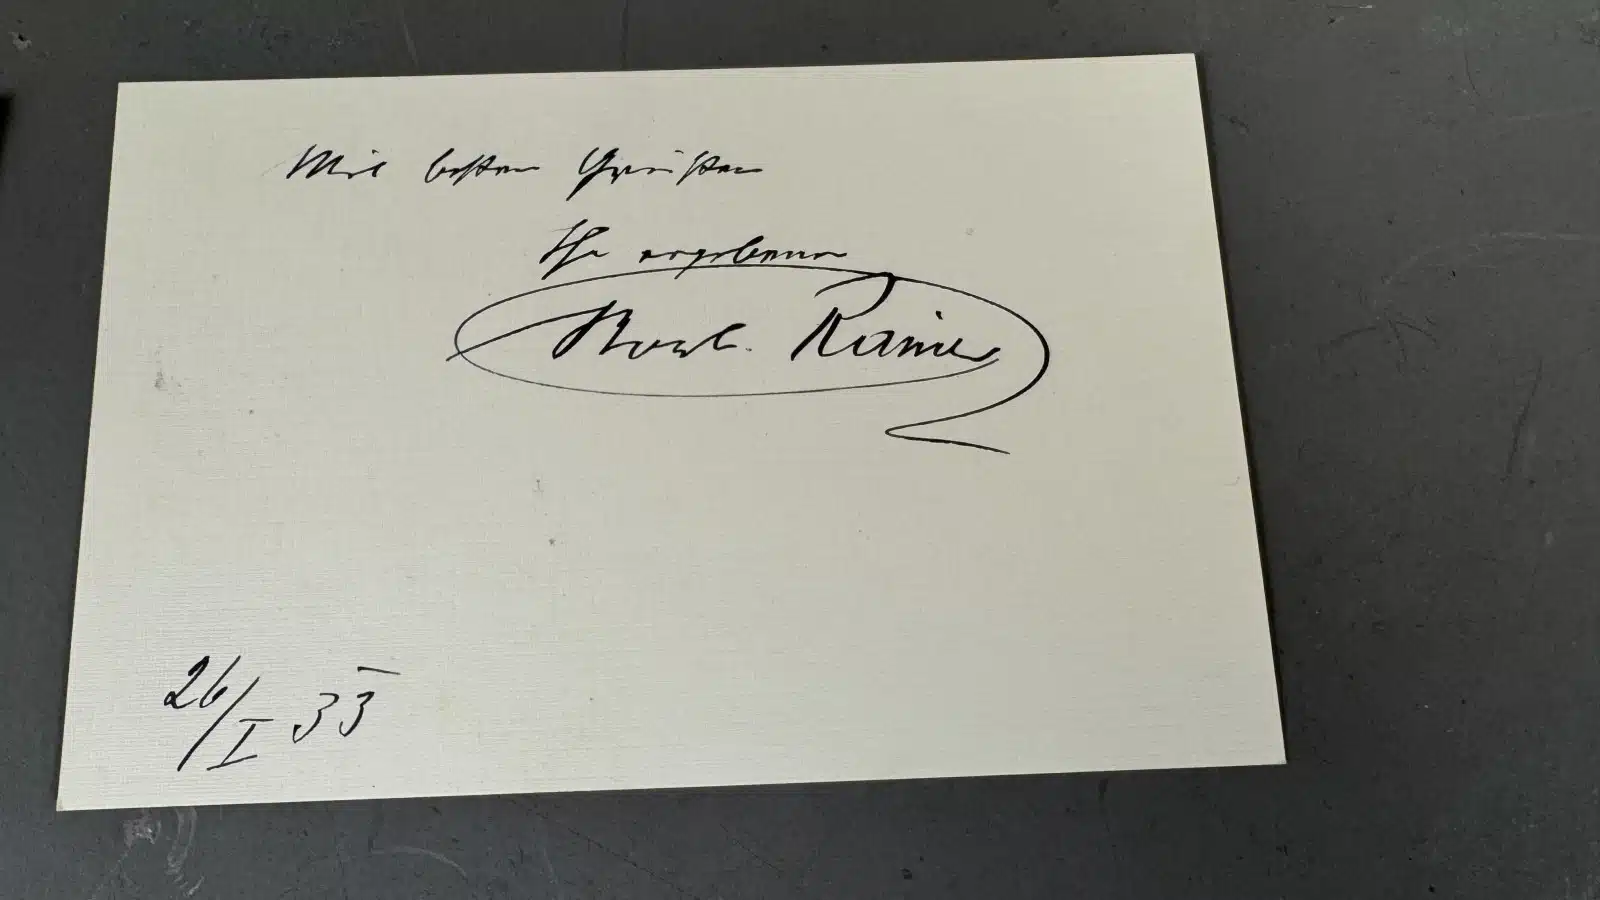 Mit besten Grüßen
Ihr ergebener
Rainer
26/I 33